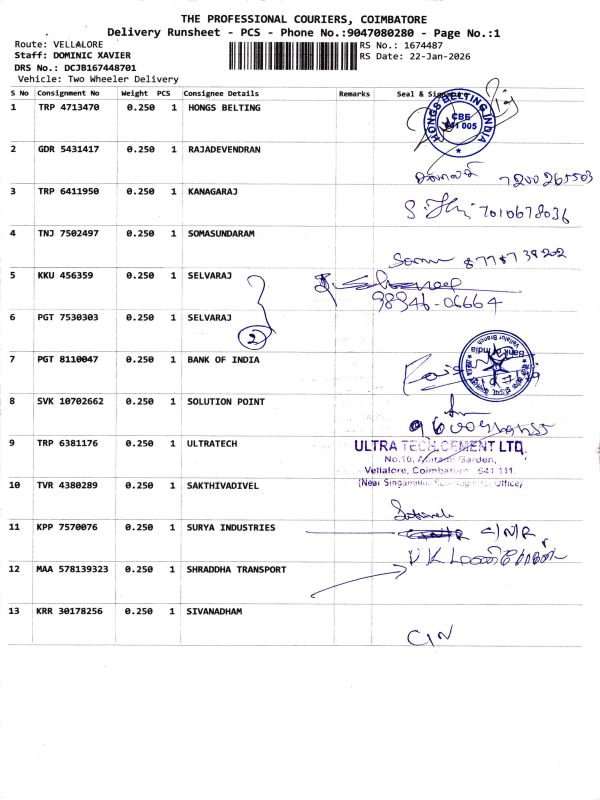 THE PROFESSIONAL COURIERS, COIMBATORE
Delivery Runsheet - PCS - Phone No.:9047080280 - Page No.:1
Route: VELLALORE
RS No.: 1674487
Staff: DOMINIC XAVIER
RS Date: 22-Jan-2026
DRS No.: DCJB167448701
Vehicle: Two Wheeler Delivery
S No Consignment No Weight PCS Consignee Details Remarks Seal &
1 TRP 4713470 0.250 1 HONGS BELTING
HONGS BELTING INDIA
CBE
641 005
2 GDR 5431417 0.250 1 RAJADEVENDRAN
7200265503
3 TRP 6411950 0.250 1 KANAGARAJ
7010678036
4 TNJ 7502497 0.250 1 SOMASUNDARAM
8778738202
5 KKU 456359 0.250 1 SELVARAJ
98946-06664
6 PGT 7530303 0.250 1 SELVARAJ
2
7 PGT 8110047 0.250 1 BANK OF INDIA
Bank of India
Vellalur Branch
8 SVK 10702662 0.250 1 SOLUTION POINT
9 TRP 6381176 0.250 1 ULTRATECH
ULTRA TECH CEMENT LTD.
Garden,
Vellalore, Coimbatore 641 111.
(Near Singanallur Office)
10 TVR 4380289 0.250 1 SAKTHIVADIVEL
11 KPP 7570076 0.250 1 SURYA INDUSTRIES
C/N/R
12 MAA 578139323 0.250 1 SHRADDHA TRANSPORT
13 KRR 30178256 0.250 1 SIVANADHAM
C/N